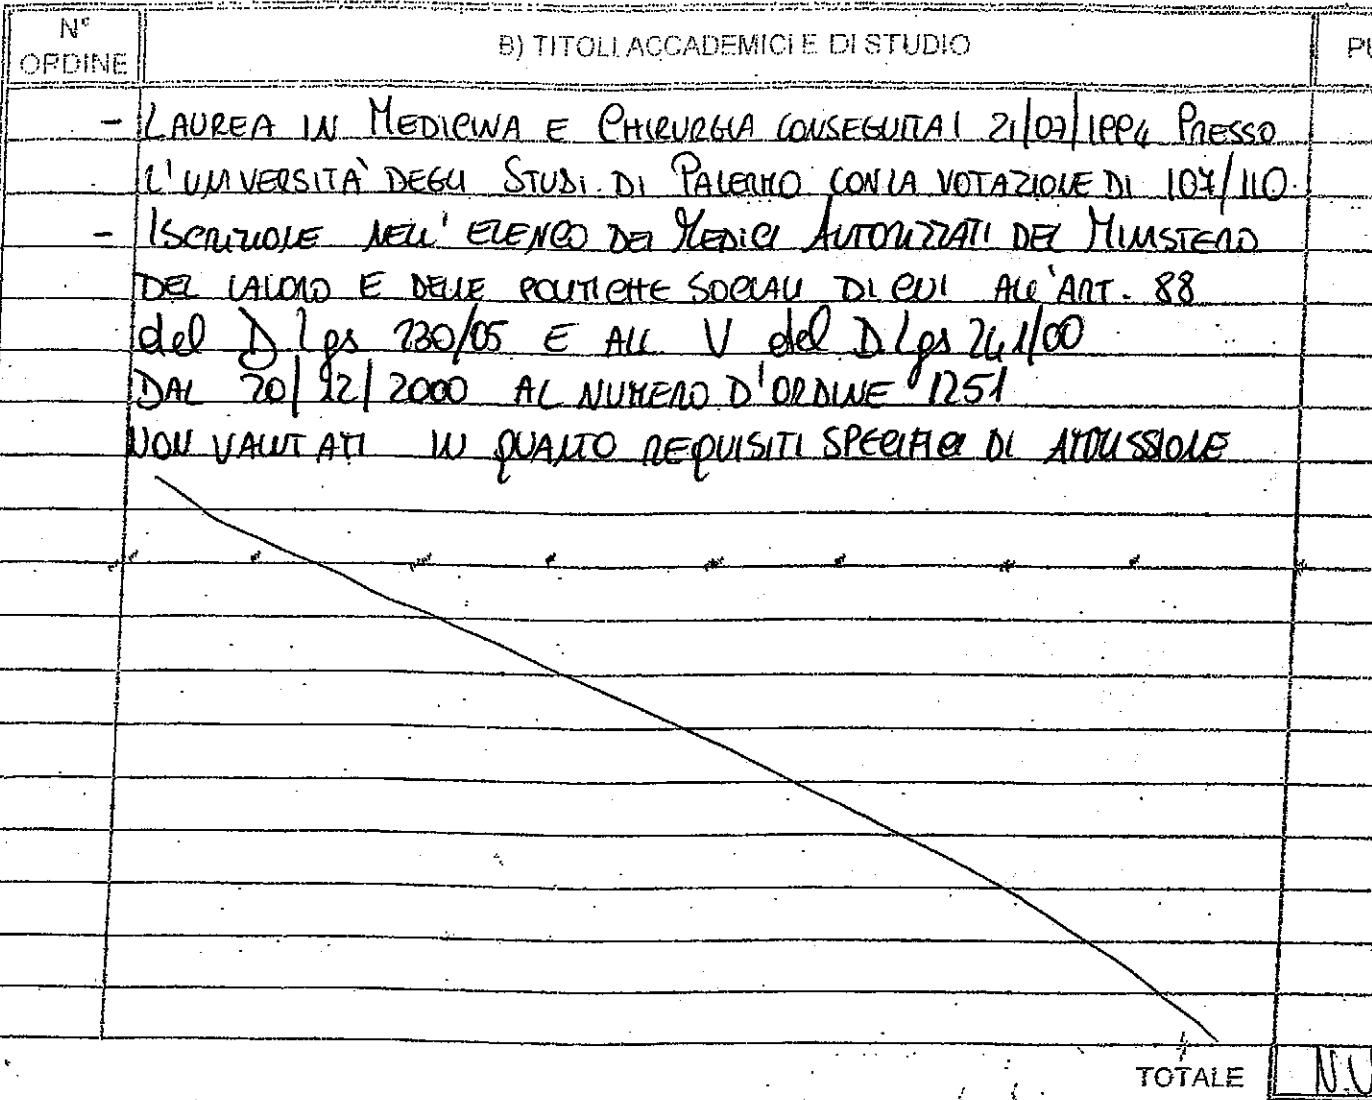 N° ORDINE
B) TITOLI ACCADEMICI E DI STUDIO
PU
- LAUREA IN MEDICINA E CHIRURGIA CONSEGUITA I 21/07/1994 PRESSO
L'UNIVERSITÀ DEGLI STUDI DI PALERMO CON LA VOTAZIONE DI 107/110.
- ISCRIZIONE NELL'ELENCO DEI MEDICI AUTORIZZATI DEL MINISTERO
DEL LAVORO E DELLE POLITICHE SOCIALI DI CUI ALL'ART. 88
del D Lgs 230/05 E ALL V del D.Lgs 241/00
DAL 20/12/2000 AL NUMERO D'ORDINE 1251
NON VALUTATI IN QUANTO REQUISITI SPECIFICI DI AMMISSIONE
TOTALE
N.V